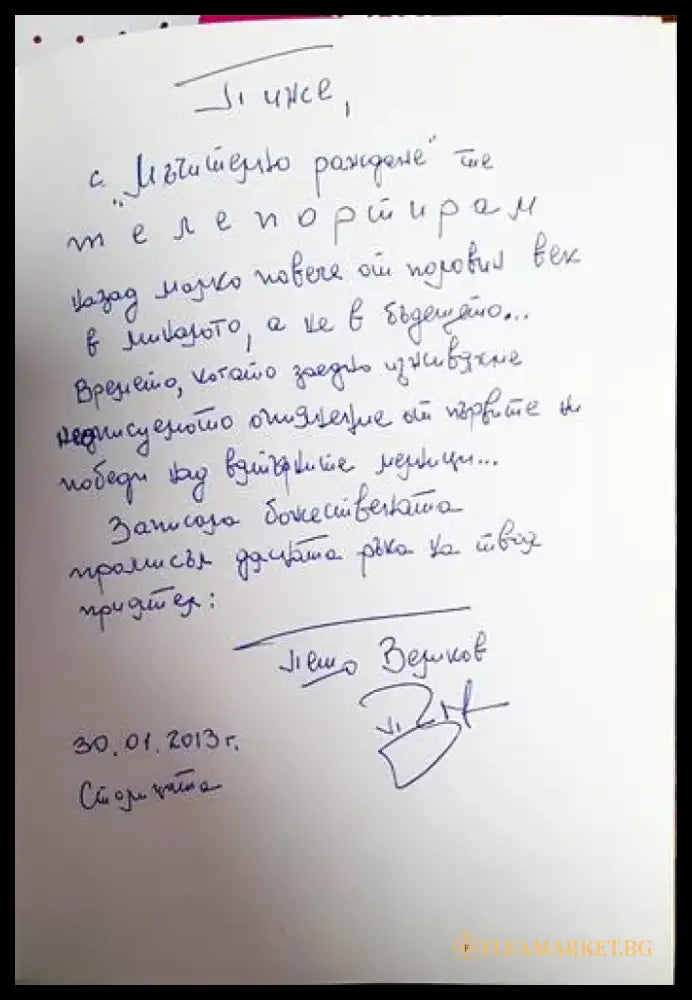 Пиже,
с "Мъчително раждане" те
телепортирам
назад малко повече от половин век
в миналото, а не в бъдещето...
Времето, когато заедно изживяхме
неописуемото опиянение от първите ни
победи над вятърните мелници...
Записала божествената
промисъл дясната ръка на твоя
приятел:
Пешо Великов
30.01.2013г.
Столицата
FLEAMARKET.BG